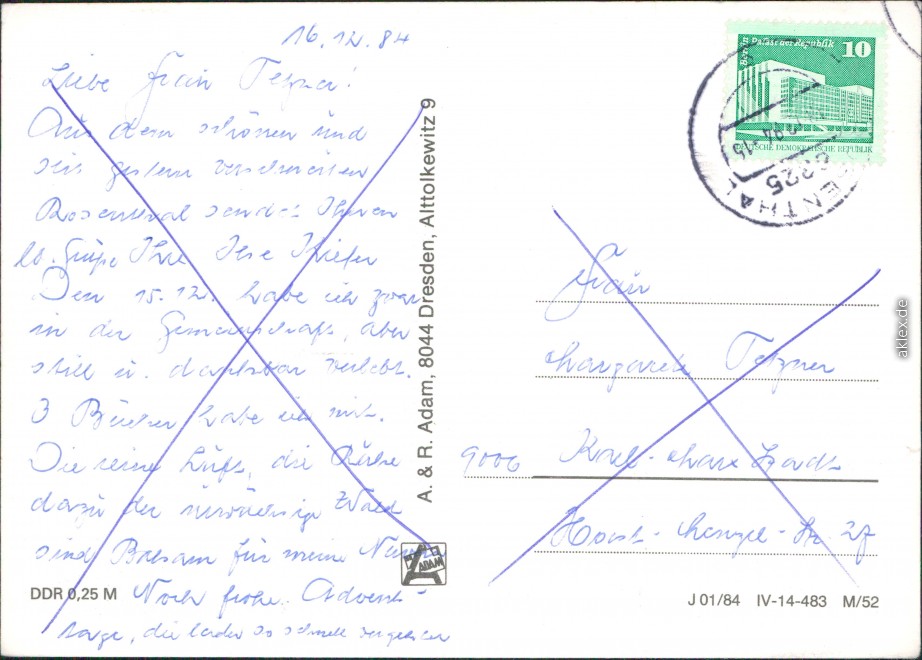 16.12.84
Liebe Frau Tetzner!
Aus dem schönen und
seit gestern verschneiten
Rosenthal sendet Ihnen
lb. Grüße Ihre Ilse
Den 15.12. habe ich zwar
in der Gemeinschaft, aber
still u. dankbar verlebt.
3 Bücher habe ich mit.
Die reine Luft, die Ruhe
dazu der Wald
sind Balsam für meine Nerven
Noch frohe Advents-
tage, die leider so schnell vergehen
DDR 0,25 M
A. & R. Adam, 8044 Dresden, Alttolkewitz 9
ADAM
Berlin Palast der Republik 10
DEUTSCHE DEMOKRATISCHE REPUBLIK
ROSENTHAL
8325
Frau
Margarete Tetzner
9006 Karl-Marx-Stadt
Horst-Menzel-Str. 27
J 01/84 IV-14-483 M/52
aklex.de